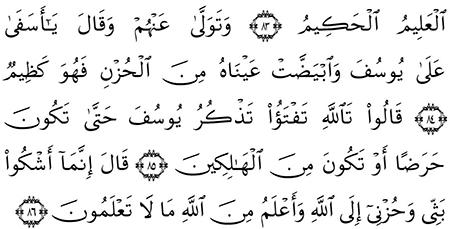 ٱلْعَلِيمُ ٱلْحَكِيمُ ۝٨٣ وَتَوَلَّىٰ عَنْهُمْ وَقَالَ يَـٰٓأَسَفَىٰ
عَلَىٰ يُوسُفَ وَٱبْيَضَّتْ عَيْنَاهُ مِنَ ٱلْحُزْنِ فَهُوَ كَظِيمٌ
۝٨٤ قَالُوا۟ تَٱللَّهِ تَفْتَؤُا۟ تَذْكُرُ يُوسُفَ حَتَّىٰ تَكُونَ
حَرَضًا أَوْ تَكُونَ مِنَ ٱلْهَـٰلِكِينَ ۝٨٥ قَالَ إِنَّمَآ أَشْكُوا۟
بَثِّى وَحُزْنِىٓ إِلَى ٱللَّهِ وَأَعْلَمُ مِنَ ٱللَّهِ مَا لَا تَعْلَمُونَ ۝٨٦